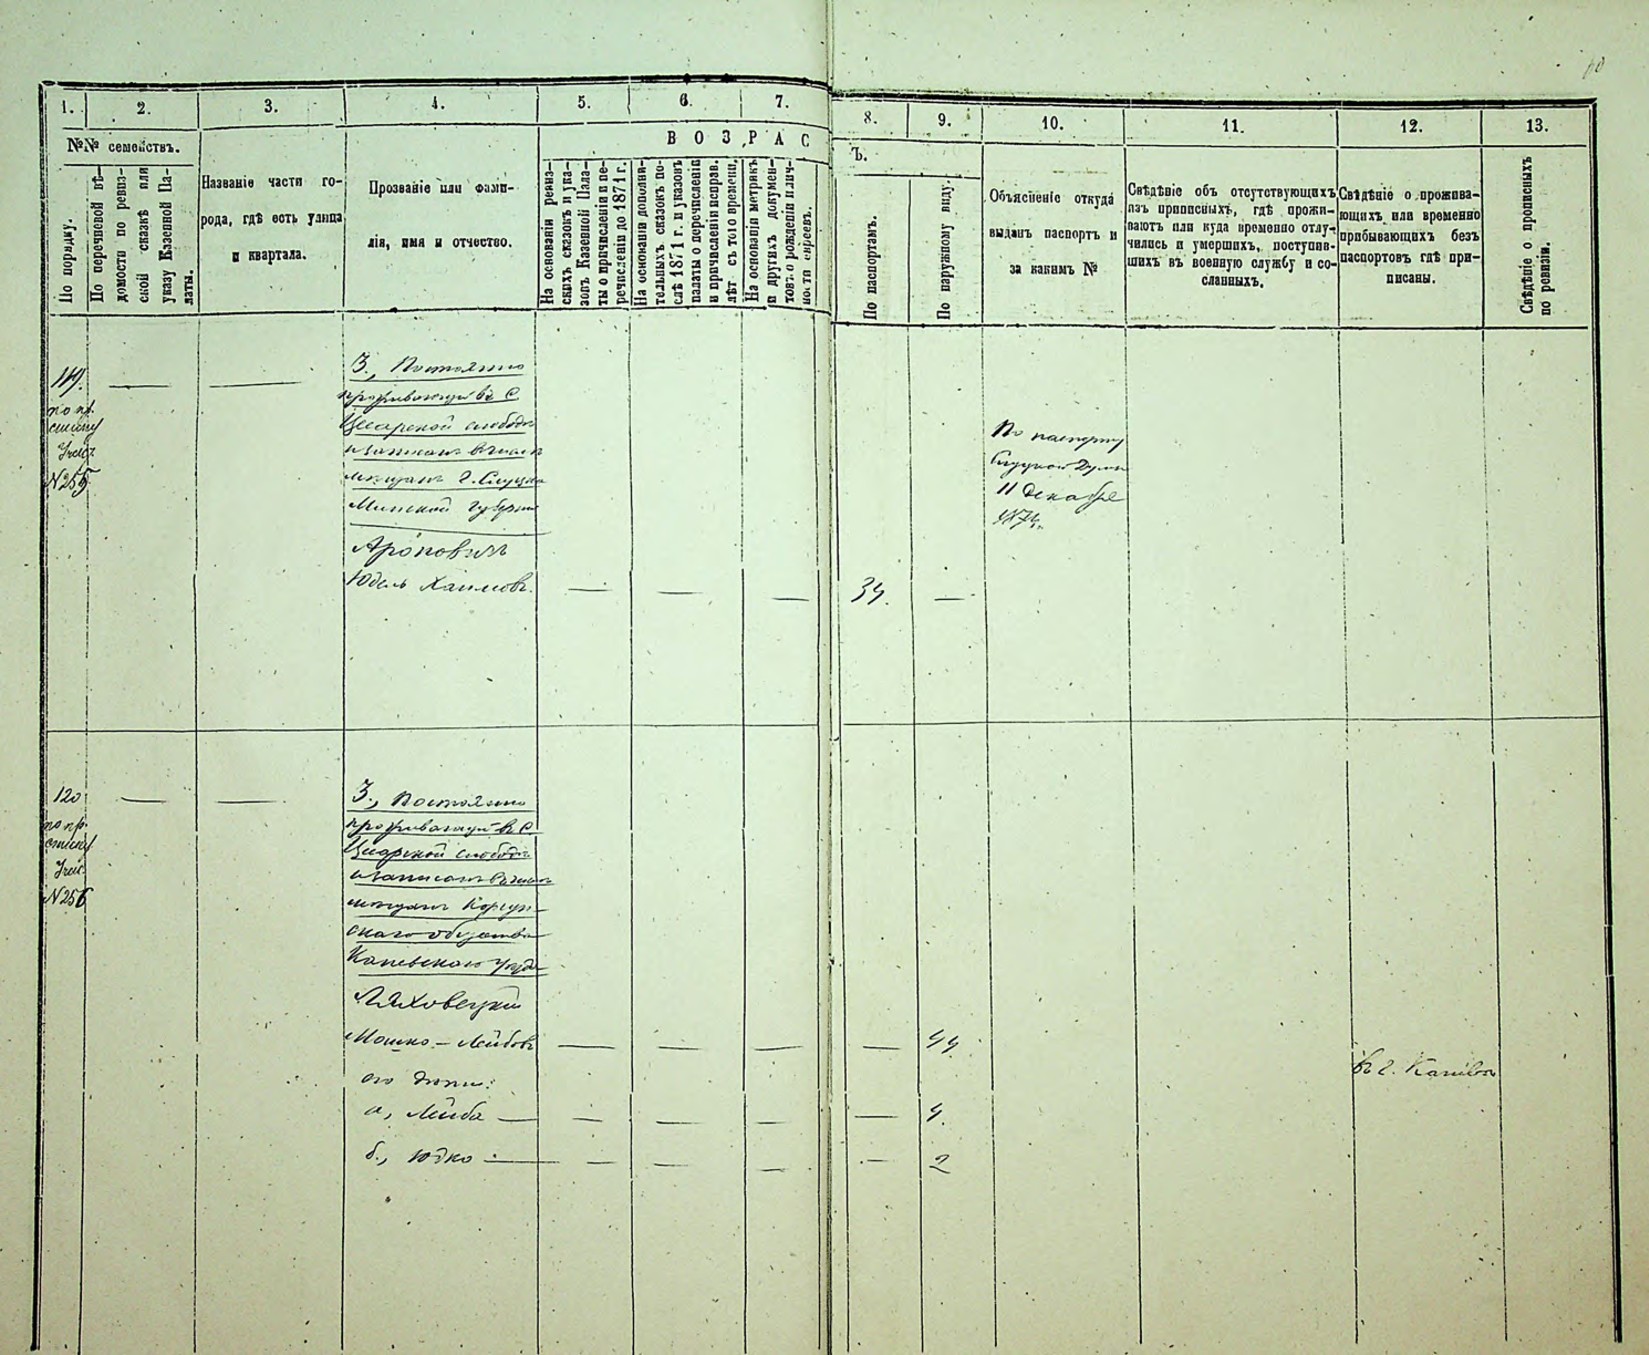 1. 2. 3. 4. 5. 6. 7. 8. 9. 10. 11. 12. 13.
№№ семействъ.
По порядку.
По перечневой вѣ-
домости по ревиз-
ской сказкѣ или
указу Казенной Па-
латы.
Названіе части го-
рода, гдѣ есть улица
и квартала.
Прозваніе или фами-
лія, имя и отчество.
ВОЗРАСТЪ.
На основаніи ревиз-
скихъ сказокъ и ука-
зовъ Казенной Пала-
ты о причисленіи и пе-
речисленіи до 1871 г.
На основаніи дополни-
тельныхъ сказокъ по-
слѣ 1871 г. и указовъ
палаты о перечисленіи
и причисленіи исправ.
лѣт съ того времени.
На основаніи метрикъ
и другихъ докумен-
товъ о рожденіи и лич-
ности евреевъ.
По паспортамъ.
По наружному виду.
Объясненіе откуда
выданъ паспортъ и
за какимъ №
Свѣдѣніе объ отсутствующихъ
изъ приписныхъ, гдѣ прожи-
ваютъ или куда временно отлу-
чились и умершихъ, поступив-
шихъ въ военную службу и со-
сланныхъ.
Свѣдѣніе о прожива-
ющихъ или временно
прибывающихъ безъ
паспортовъ гдѣ при-
писаны.
Свѣдѣніе о прописныхъ
по ревизіи.
119.
по пр.
списку
N 255
З., Постоянно
проживающій въ С.
слободѣ
и записанъ въ числѣ
мѣщанъ г. Слуцка
Минской губерніи
Ароновичъ
Юдель Хаимовъ.
34.
По паспорту
Слуцкой Думы
11 Декабря
120
по пр.
списку
N 256
З., Постоянно
проживающій въ С.
слободѣ
и записанъ въ числѣ
мѣщанъ Корсун-
скаго общества
Каневскаго уѣзда
Ляховецкій
Мошко-Лейбовъ
44.
въ г. Каневѣ
его дѣти:
а, Лейба
4.
б., Юдко
2